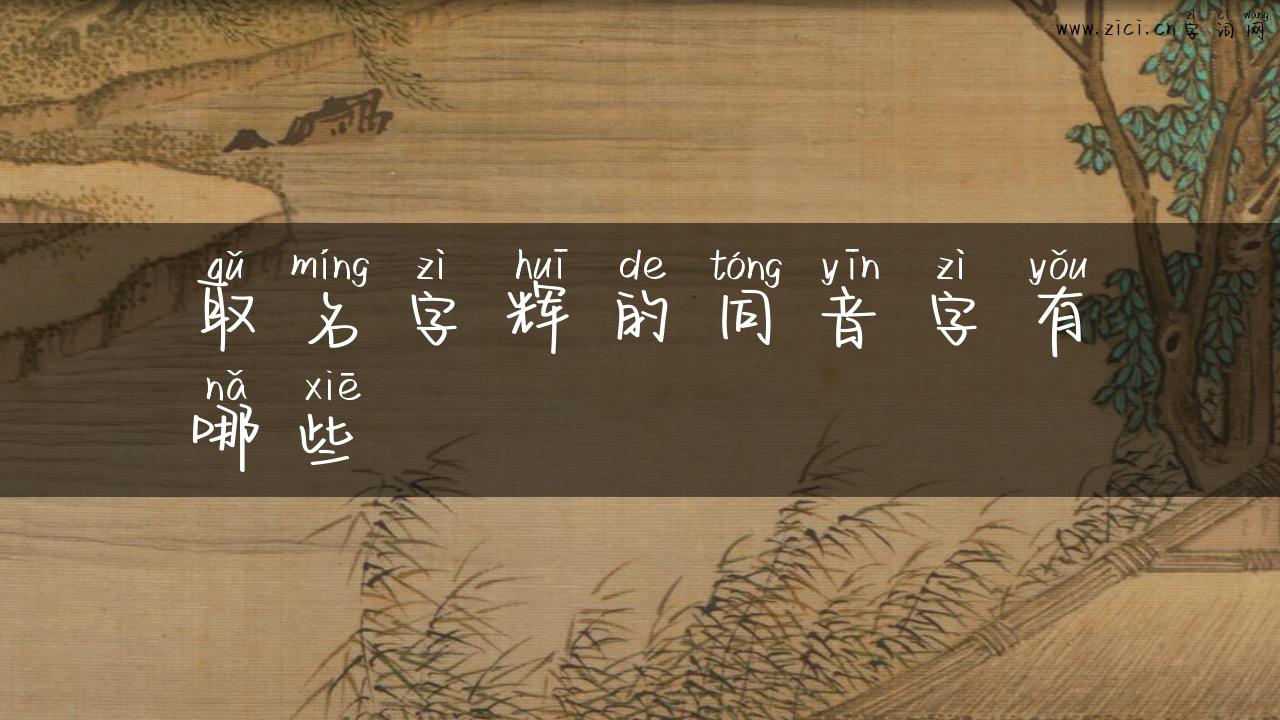 zì cí wǎng
www.zici.cn字词网
qǔ míng zì huī de tóng yīn zì yǒu
取名字辉的同音字有
nǎ xiē
哪些